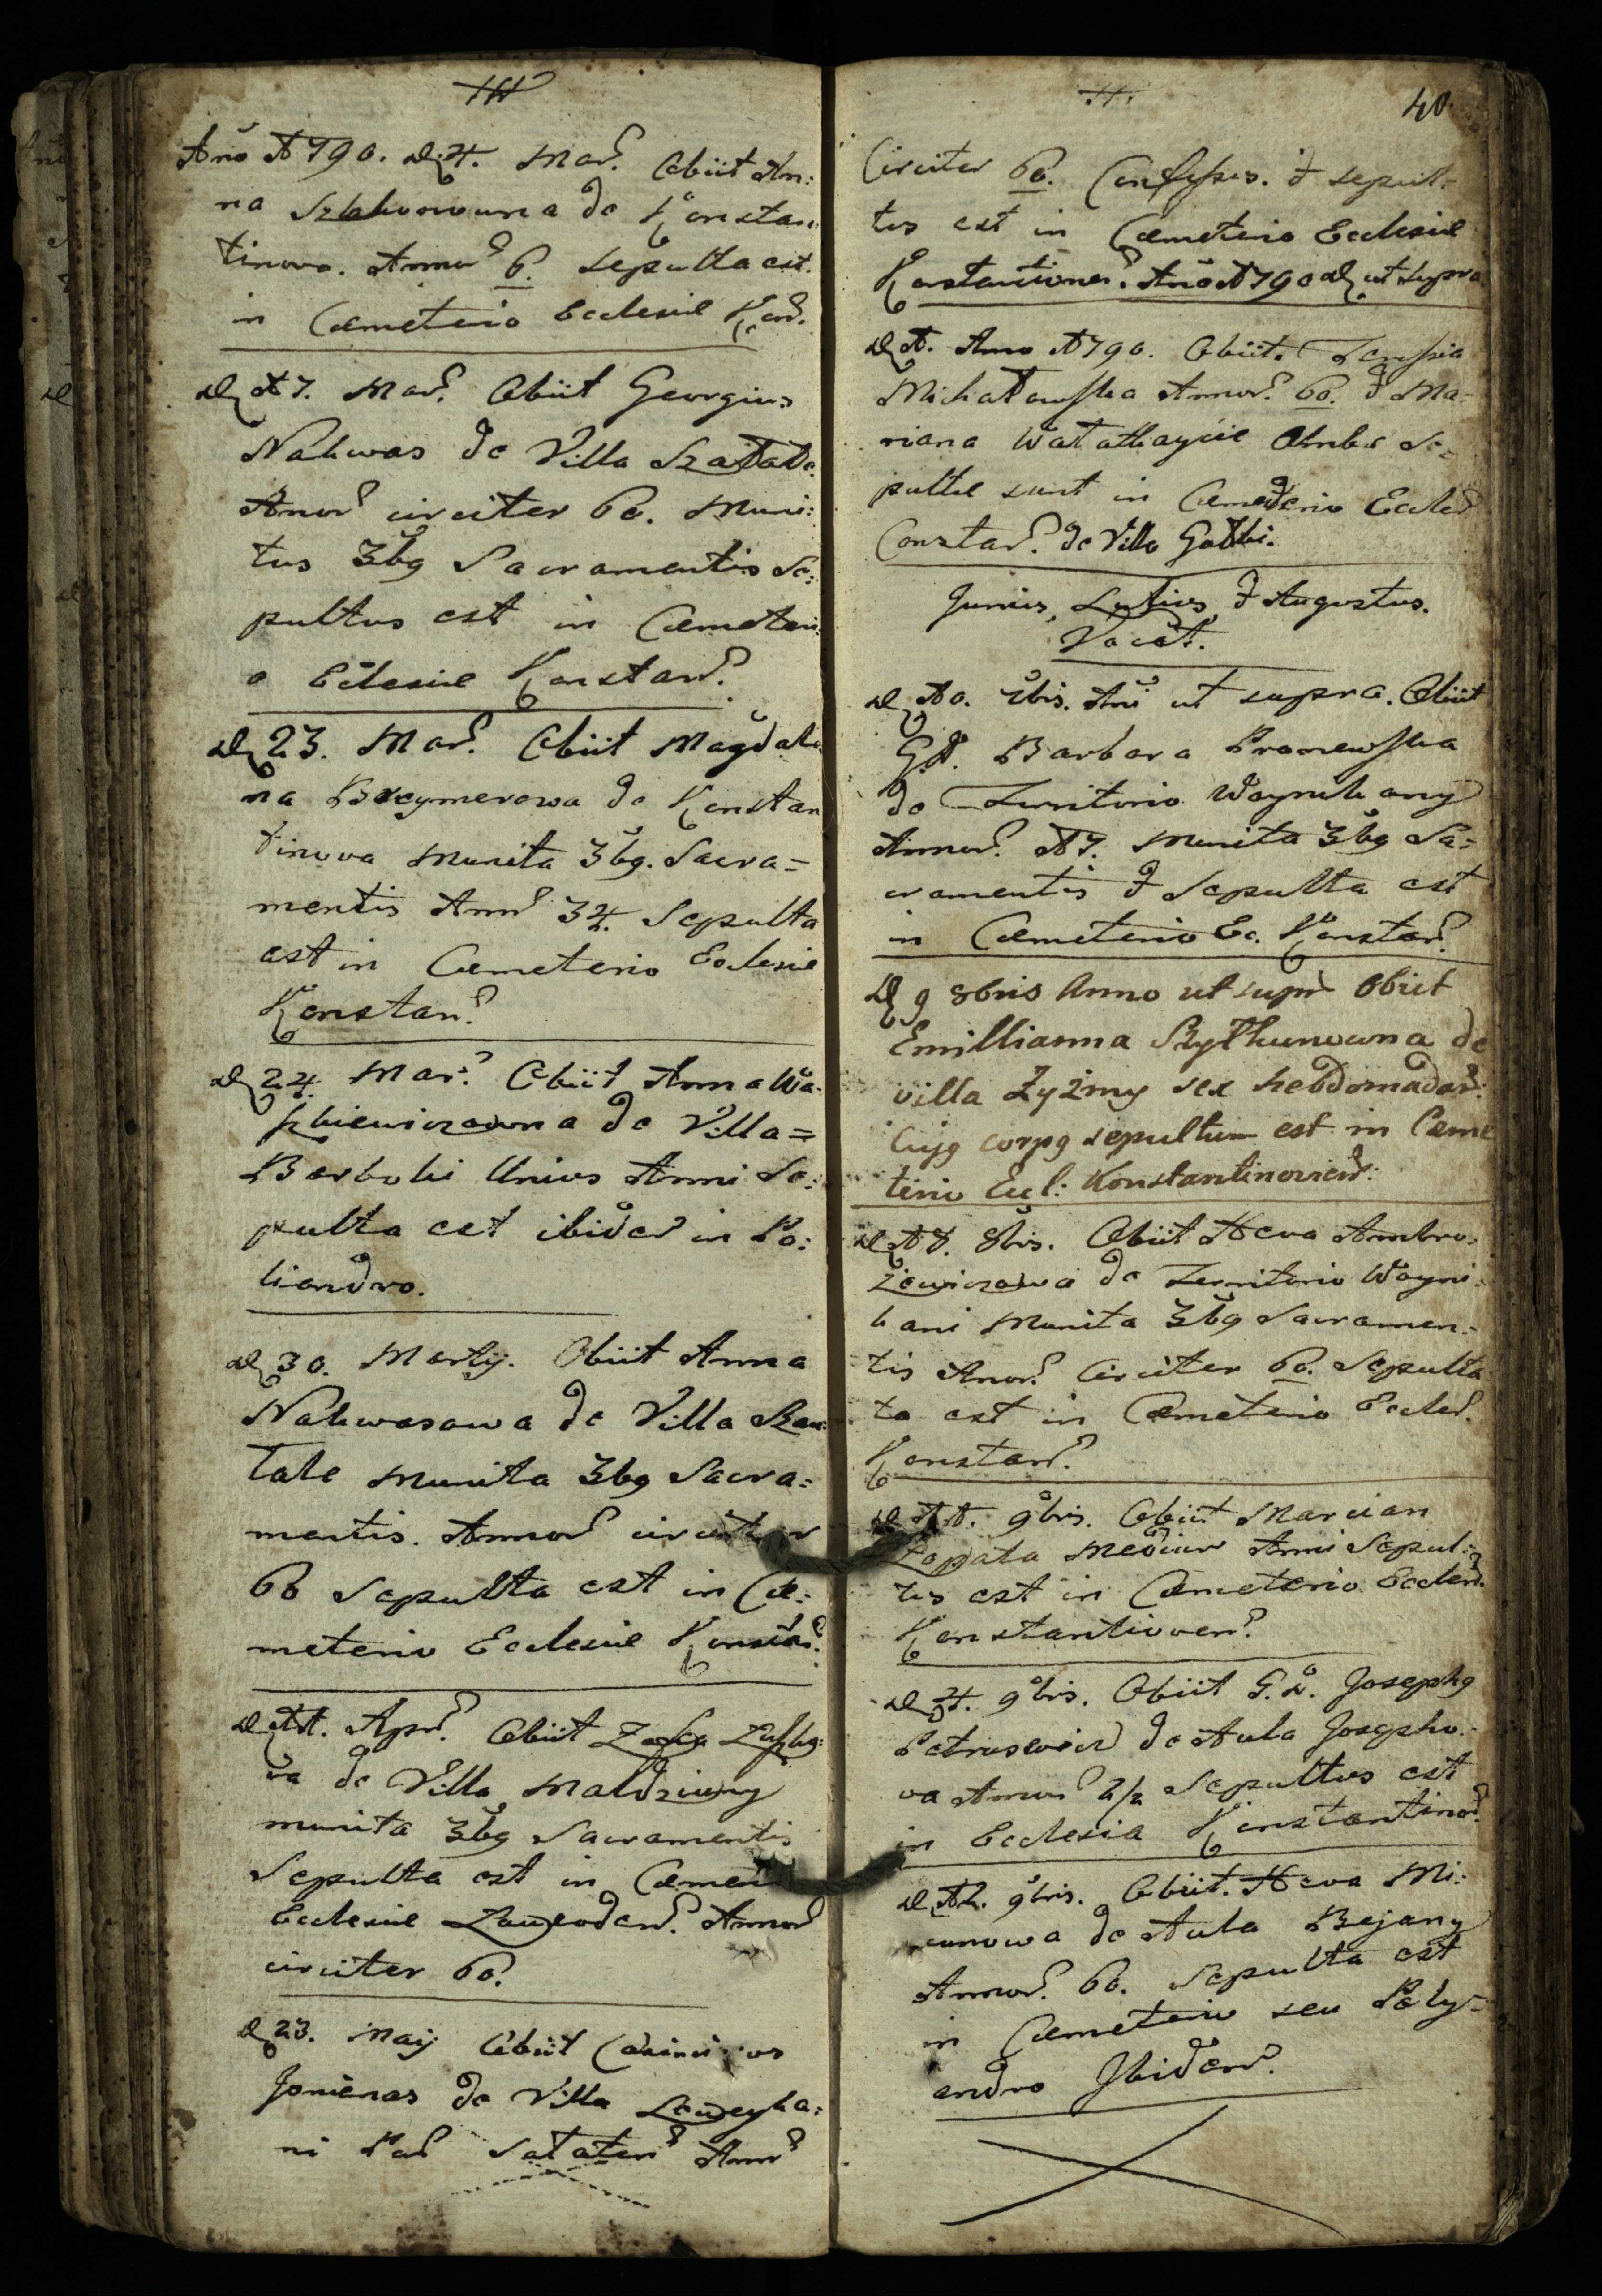 Año 1790. D. 4. Mar. Obiit An:
na de Konstan
tinova. Annor 6. sepulta est.
in Cæmeterio Ecclesiæ Kon.
D 17. Mar. Obiit Georgius
Nakwas de Villa Szatate.
Anor circiter 60. Muni:
tus 3bg Sacramentis Se:
pultus est in Cæmeteri:
o Eclesiæ Konstan.
D 23. Mar. Obiit Magdale
na de Konstan
tinova munita 3bg. Sacra=
mentis Ann 34. Sepulta
est in Cæmeterio Eclesiæ
Konstan.
D 24. Mar. Obiit Anna Wa:
de Villa=
Barboli Unius Anni Se:
pulta est ibidem in Po:
liandro.
D 30. Martij. Obiit Anna
Nakwasowa de Villa Szau
tate munita 3bg Sacra=
mentis. Annor circiter
60 Sepulta est in Cæ:
meterio Ecclesiæ Konstan.
D 11. Apr. Obiit
va de Villa Maldziuny
munita 3bg Sacramentis
Sepulta est in Cæmet
Ecclesiæ Annor
circiter 60.
D 23. Maij Obiit
Jonienas de Villa
ni Annor
40
Circiter 60. Confessus. & sepul=
tus est in Cæmeterio Ecclesiæ
Konstantinov. Año 1790 D ut supra
D 1. Ano 1790. Obiit.
Michałowska Annor. 60. & Ma=
riana Ambæ Se=
pultæ sunt in Cæmeterio Eccles
Constan. de Villa
Junius, Julius, & Augustus.
Vacat.
D 10. 7bris. Ani ut supra. Obiit
G.D. Barbara Pronewska
de Territorio Woynikany
Annor. 17. Munita 3bg Sa=
cramentis & Sepulta est
in Cæmeterio Ec. Konstan.
D 9 8bris Anno ut supr Obiit
Emillianna de
villa Zyżmy sex hebdomadar:
Cujg corpg sepultum est in Cæme
terio Eccl: Konstantinovien:
D 17. 8bris. Obiit Heva Ambro:
ziewiczowa de Territorio Woyni:
kani Munita 3bg Sacramen:
tis Anor. Circiter 60. Sepulta
ta est in Cæmeterio Eccles.
Konstan.
D 11. 9bris. Obiit Marcian
Łappata Anni Sepul:
tus est in Cæmeterio Eccles.
Konstantinoven.
D 4. 9bris. Obiit G.D. Josephg
de Aula Josepho:
va Annor Sepultus est
in Ecclesia Konstantinov.
D 12. 9bris. Obiit. Heva Mi:
cunowa de Aula Bejany
Annor. 60. Sepulta est
in Cæmeterio seu Poly=
andro Ibidem.